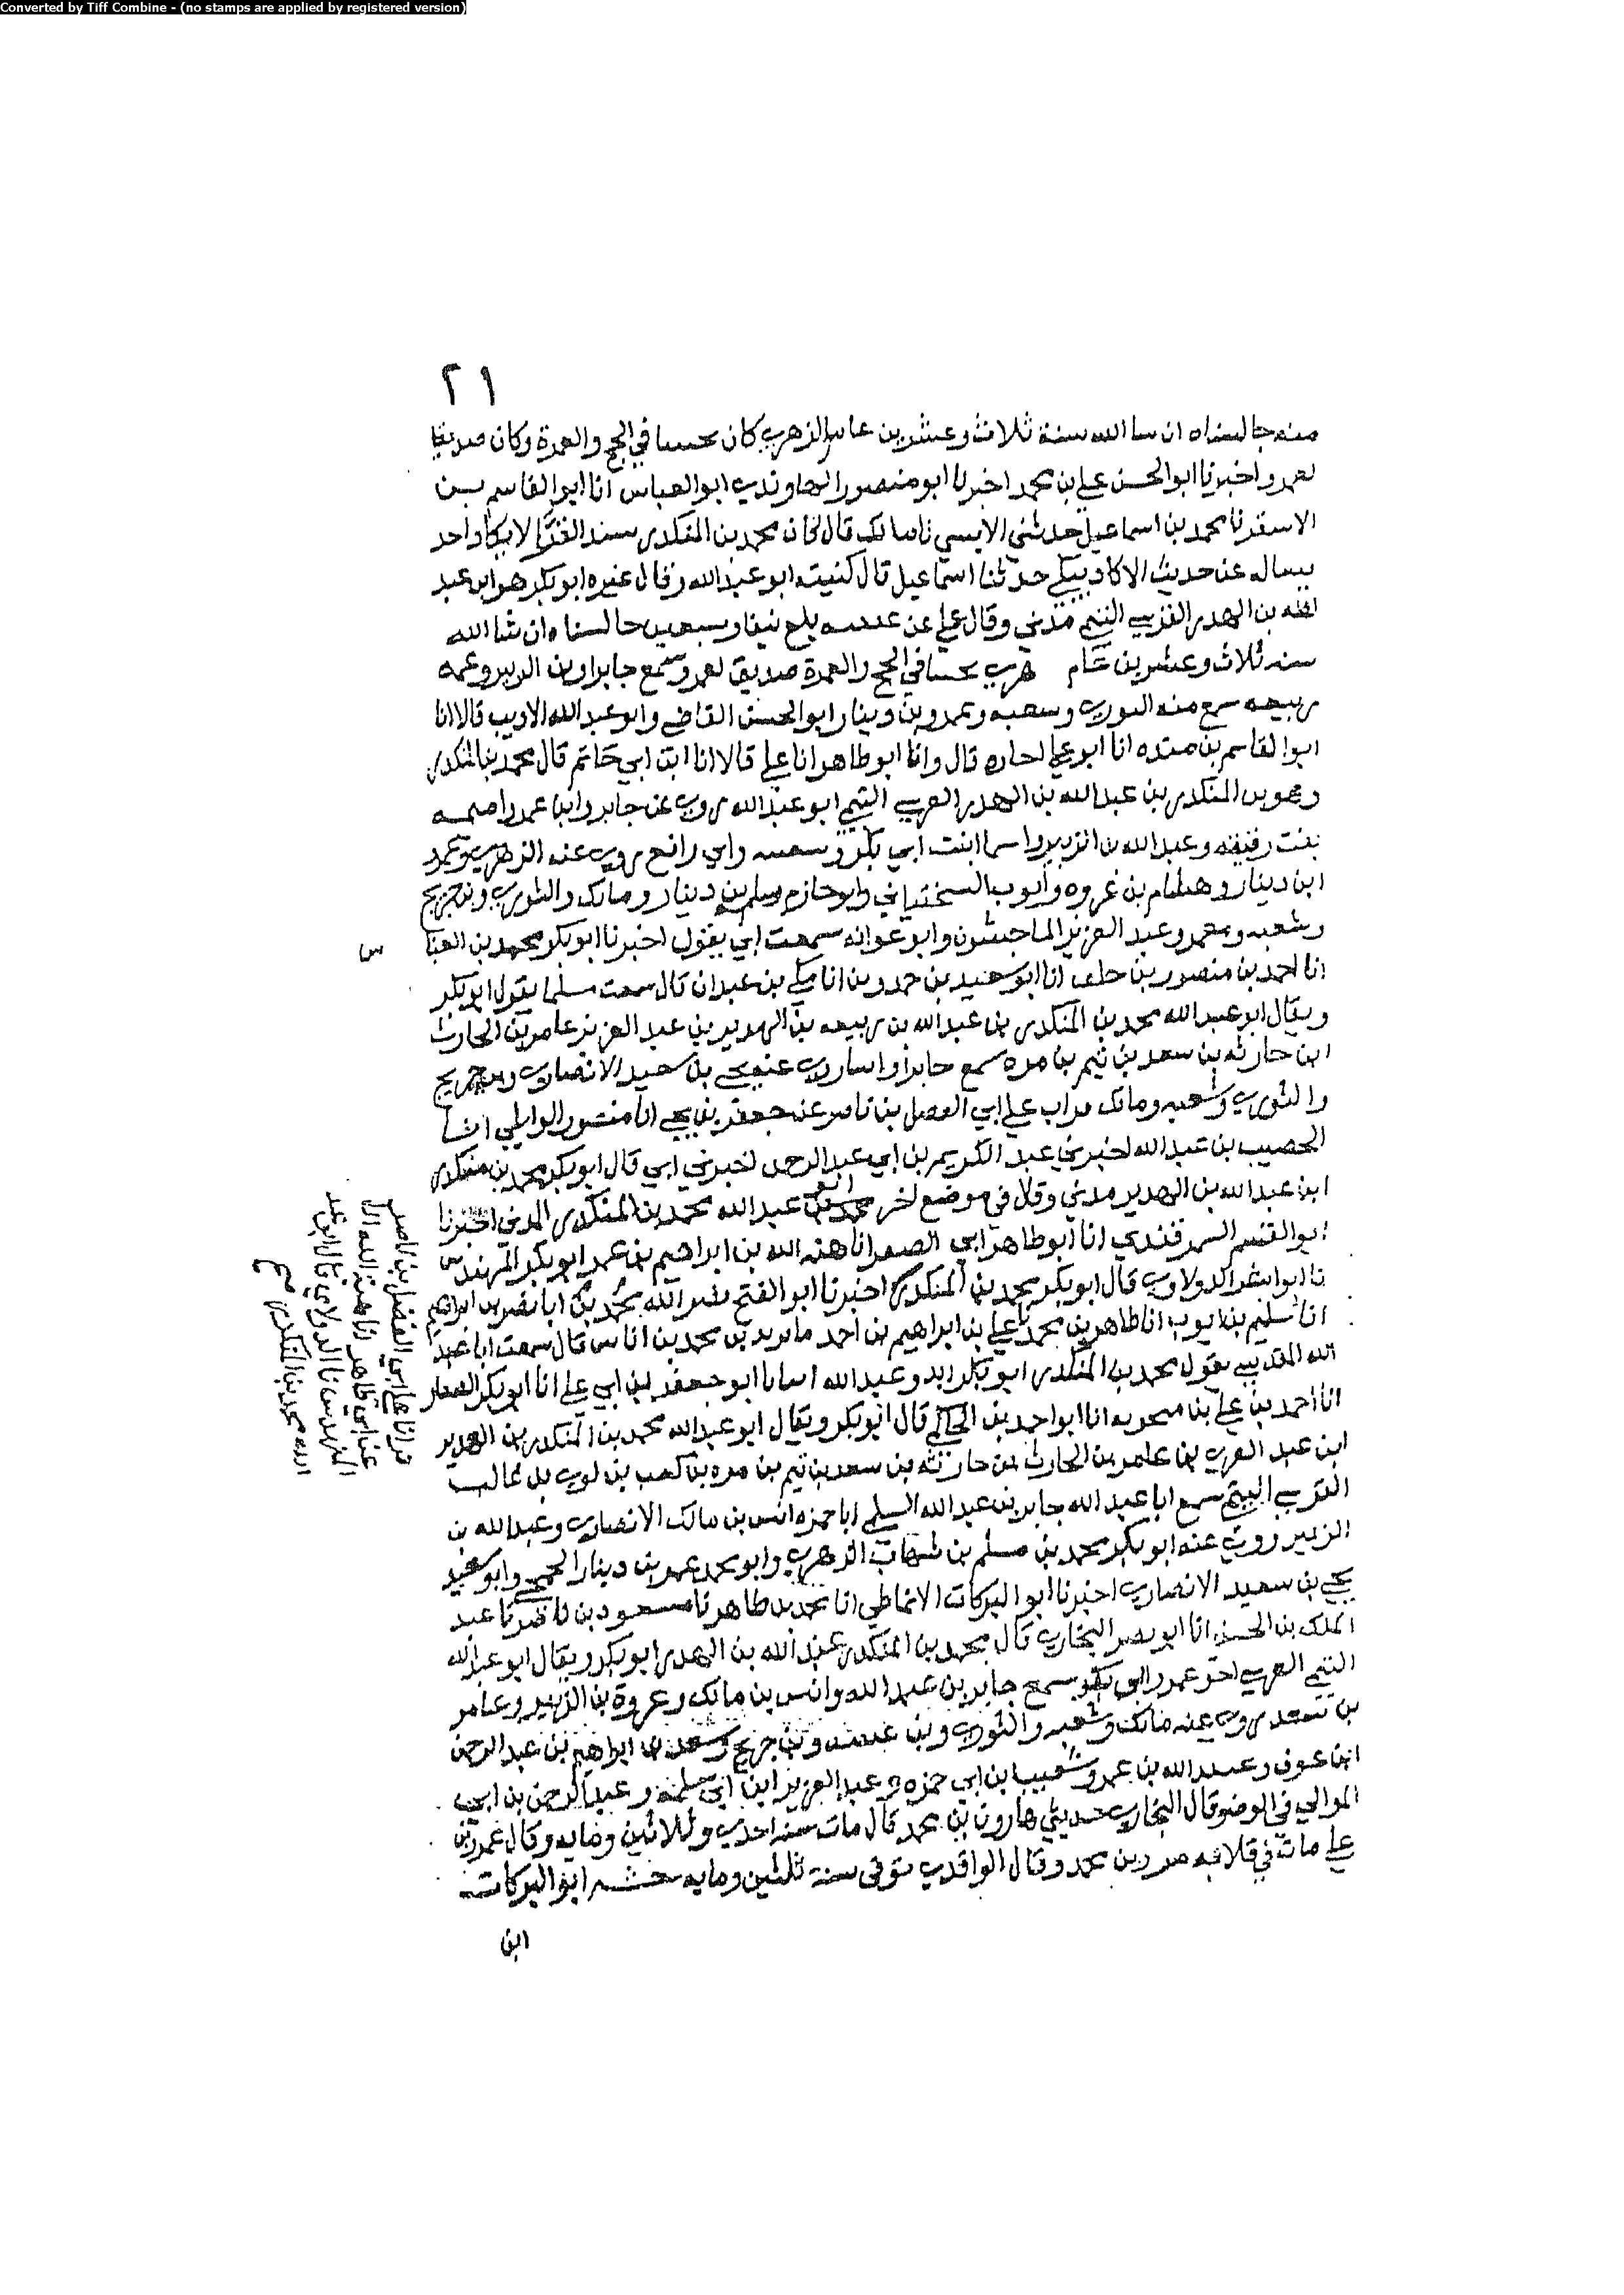 Converted by Tiff Combine - (no stamps are applied by registered version)
٢١
منه جالسناه ان سا الله سنة ثلاث وعشرين عام الزهري كان يحسبنا في الحج والعمرة وكان صديقا
لعمرو اخبرنا ابو الحسن علي بن محمد اخبرنا ابو منصور النهاوندي ابو العباس انا ابو القاسم بن
الاسقر نا محمد بن اسماعيل حدثني الاويسي نا مالك قال كان محمد بن المنكدر سيد القرا لا يكاد احد
يساله عن حديث الا كاد يبكي حدثنا اسماعيل قال كنيته ابو عبد الله وقال غيره ابو بكر هو ابن عبد
الله بن الهدير القرشي التيمي مدني وقال علي عن عيينه بلغ نيفا وسبعين جالسناه ان شا الله
سنه ثلاث وعشرين عام هري يحسبنا في الحج والعمرة صديق لعمرو سمع جابرا وبن الزبير وعمه
ربيعه سمع منه الثوري وشعبه وعمرو بن دينار ابو الحسن القاضي وابو عبد الله الاديب قالا انا
ابو القاسم بن منده انا ابو علي اجازه قال وانا ابو طاهر انا علي قالا انا ابن ابي حاتم قال محمد بن المنكدر
وهو بن المنكدر بن عبد الله بن الهدير القرشي التيمي ابو عبد الله روى عن جابر وابن عمر واميمه
بنت رقيقه وعبد الله بن الزبير واسما ابنت ابي بكر وسفينه وابي رافع روى عنه الزهري وعمرو
ابن دينار وهشام بن عروه وايوب السختياني وابو حازم وسلمه بن دينار ومالك والثوري وبن جريج
وشعبه ومعمر وعبد العزيز الماجشون وابو عوانه سمعت ابي يقول اخبرنا ابو بكر محمد بن العبا
س
انا احمد بن منصور بن خلف انا ابو سعيد بن حمدون انا مكي بن عبدان قال سمعت مسلما يقول ابو بكر
ويقال ابو عبد الله محمد بن المنكدر بن عبد الله بن ربيعه بن الهدير بن عبد العزيز عامر بن الحارث
ابن حارثه بن سعد بن تيم بن مره سمع جابرا وانسا روى عنه يحيى بن سعيد الانصاري وبن جريج
والثوري وشعبه ومالك قرات علي ابي الفضل بن ناصر عن جعفر بن يحيى انا منصور الوايلي انا
الخصيب بن عبد الله اخبرني عبد الكريم بن ابي عبد الرحمن اخبرني ابي قال ابو بكر محمد بن منكدر
ابن عبد الله بن الهدير مدني وقال في موضع اخر ابو عبد الله محمد بن المنكدر المدني اخبرنا
ابو القسم السمرقندي انا ابو طاهر ابي الصقر انا هبه الله بن ابراهيم بن عمر ابو بكر المهندس
نا ابو بشر الدولابي قال ابو بكر محمد بن المنكدر اخبرنا ابو الفتح نصر الله بن محمد ابا نصر بن ابراهيم
انا سليم بن ايوب انا طاهر بن محمد نا علي بن ابراهيم بن احمد نا يزيد بن محمد بن اناس قال سمعت ابا عبد
الله المقدمي يقول محمد بن المنكدر ابو بكر ابو عبد الله انبانا ابو جعفر بن ابي علي انا ابو بكر الصفار
انا احمد بن علي بن منجويه انا ابو احمد بن الحاكم قال ابو بكر ويقال ابو عبد الله محمد بن المنكدر بن الهدير
ابن عبد العزي بن عامر بن الحارث بن حارثه بن سعد بن تيم بن مره بن كعب بن لوي بن غالب
القرشي التيمي سمع ابا عبد الله جابر بن عبد الله السلمي ابا حمزه انس بن مالك الانصاري وعبد الله بن
الزبير روى عنه ابو بكر محمد بن مسلم بن شهاب الزهري وابو محمد عمرو بن دينار الجمحي وابو سعيد
يحيى بن سعيد الانصاري اخبرنا ابو البركات الانماطي انا محمد بن طاهر نا مسعود بن ناصر نا عبد
الملك بن الحسن انا ابو نصر البخاري قال محمد بن المنكدر عبد الله بن الهدير ابو بكر ويقال ابو عبد الله
التيمي القرشي اخو عمر وابي بكر سمع جابر بن عبد الله وانس بن مالك وعروة بن الزبير وعامر
بن سعد روى عنه مالك وشعبه والثوري وبن عيينه وبن جريج وسعد بن ابراهيم بن عبد الرحمن
ابن عوف وعبيد الله بن عمرو وشعيب بن ابي حمزه وعبد العزيز ابن ابي سلمه وعبد الرحمن بن ابي
الموالي في الوضو قال البخاري حدثني هارون بن محمد قال مات سنه احدى وثلاثين ومايه وقال عمرو بن
علي مات في خلافه مروان بن محمد وقال الواقدي توفي سنة ثلثين ومايه حدثنا ابو البركات
ابن
قرانا علي ابي الفضل بن ناصر
عن ابي طاهر انا هبة الله انا
المهندس نا الدولابي قال ابو عبد
الله محمد بن المنكدر صح